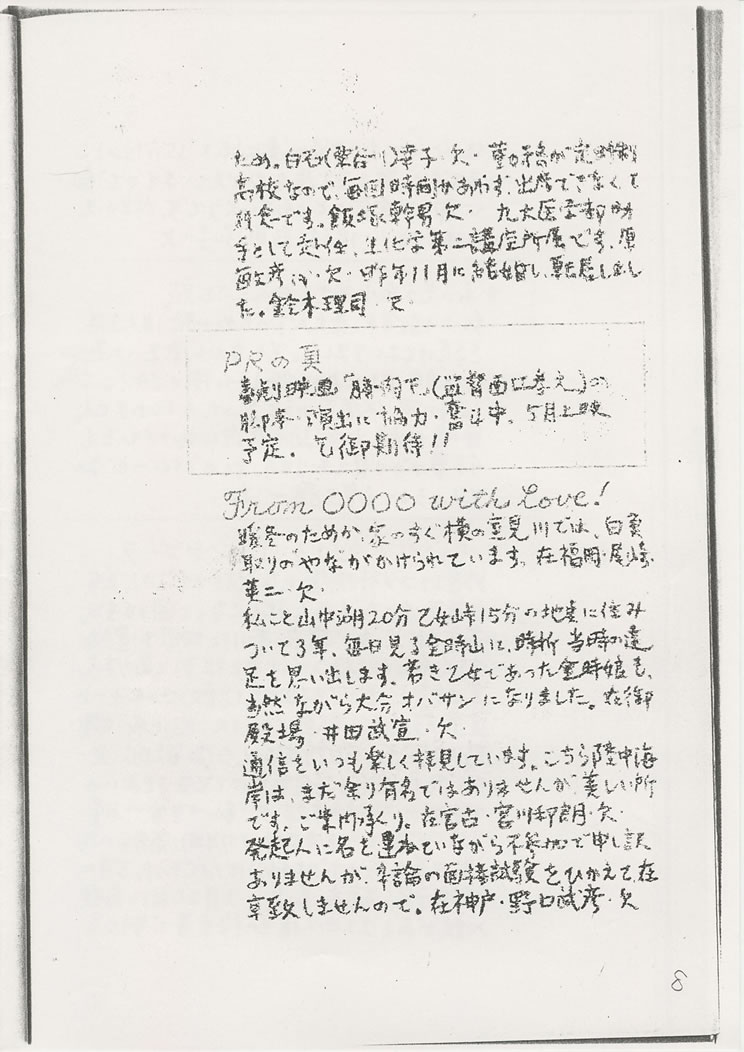 ため。白石(熊谷)幸子・欠・ 定時制
高校なので、毎回時間があわず、出席できなくて
残念です。飯塚幹男・欠・ 九大医学部助
手として赴任、生化学第二講座所属です。原
欠・昨年11月に結婚し、転居しまし
た。鈴木理司・欠
PRの頁
喜劇映画「勝・ (監督西口 )の
脚本・演出に協力・奮斗中、5月上映
予定。乞御期待!!
From OOOO with Love!
暖冬のためか、家のすぐ横の室見川では、白魚
取りのやながかけられています。在福岡・尾崎
第二・欠・
私こと山中湖20分乙女峠15分の地点に住み
ついて3年、毎日見る金時山に、時折当時の遠
足を思い出します。若き乙女であった金時娘も、
当然ながら大分オバサンになりました。在御
殿場・井田武宣・欠・
通信をいつも楽しく拝見しています。こちら陸中海
岸は、まだ余り有名ではありませんが、美しい所
です。ご案内承り。在宮古・宮川 朗・欠・
発起人に名を連ねていながら不参加で申し訳
ありませんが、卒論の面接試験をひかえて在
京致しませんので。在神戸・野口武彦・欠
8